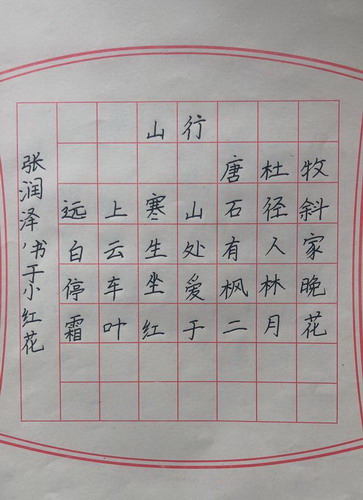 山行
唐杜牧
远上寒山石径斜
白云生处有人家
停车坐爱枫林晚
霜叶红于二月花
张润泽书于小红花